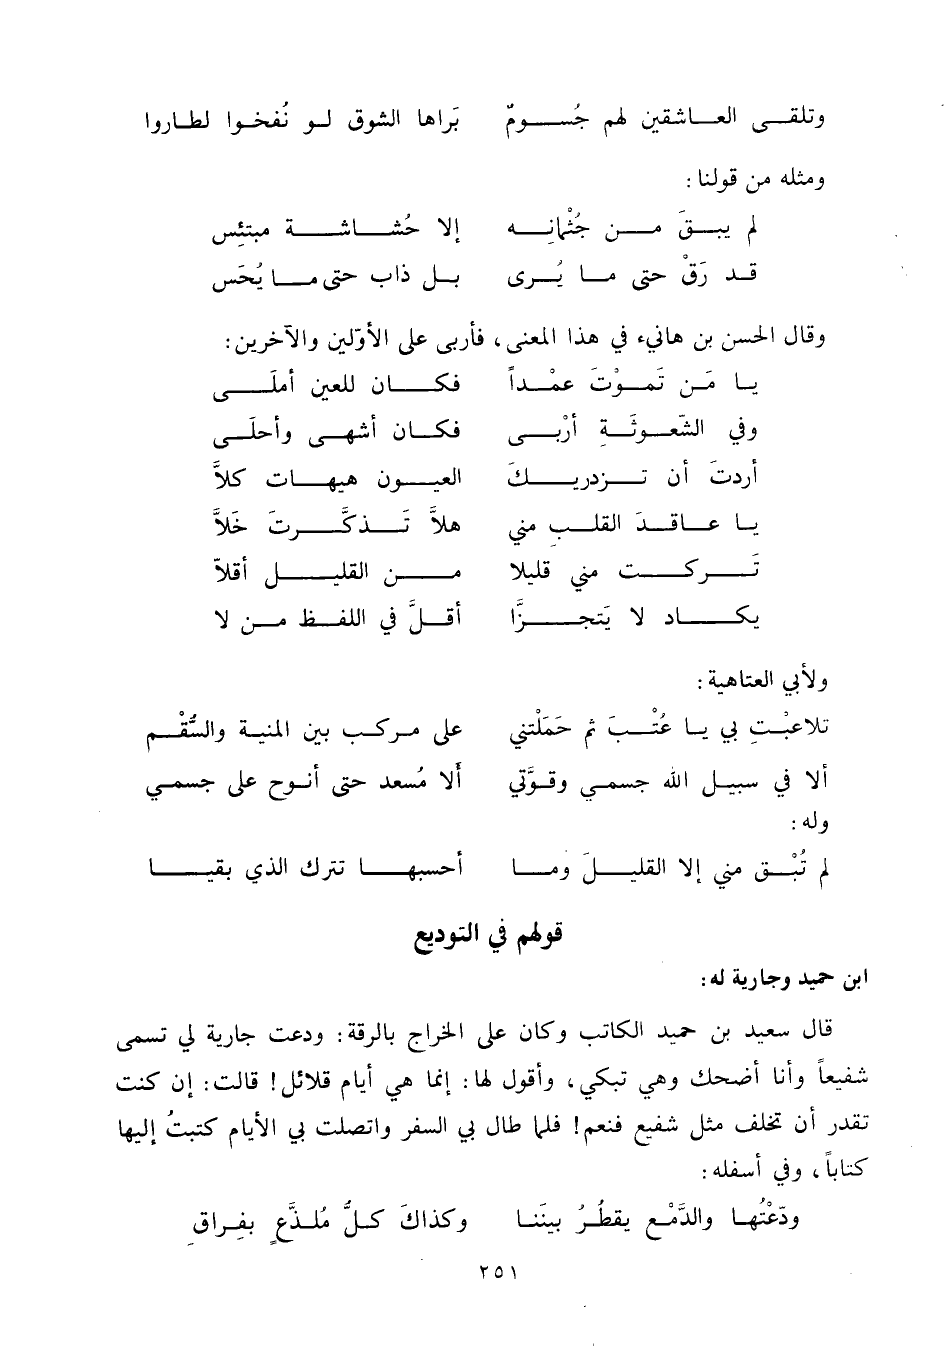 وتلقى العاشقين لهم جُسومٌ بَراها الشوق لو نُفخوا لطاروا
ومثله من قولنا :
لم يبقَ من جُثْمانِه إلا حُشاشة مبتئِس
قد رَقّ حتى ما يُرى بل ذاب حتى ما يُحَس
وقال الحسن بن هانيء في هذا المعنى ، فأربى على الأوّلين والآخرين :
يا مَن تَموْتَ عمْداً فكان للعين أملَى
وفي الشّعوثَة أرْبى فكان أشهى وأحلَى
أردتَ أن تزدريكَ العيون هيهات كلاَّ
يا عاقدَ القلب مني هلاَّ تذكَّرتَ حَلاَّ
تَركت مني قليلا من القليل أقلاّ
يكاد لا يَتجزَّا أقلَّ في اللفظ من لا
ولأبي العتاهية :
تلاعبْتِ بي يا عُتْبَ ثم حَمَلْتني على مركب بين المنية والسُّقْم
ألا في سبيل الله جسمي وقوَّتي ألا مُسعد حتى أنوح على جسمي
وله :
لم تُبْق مني إلا القليلَ وما أحسبها تترك الذي بقيا
قولهم في التوديع
ابن حميد وجارية له :
قال سعيد بن حميد الكاتب وكان على الخراج بالرقة : ودعت جارية لي تسمى
شفيعاً وأنا أضحك وهي تبكي ، وأقول لها : إنما هي أيام قلائل ! قالت : إن كنت
تقدر أن تخلف مثل شفيع فنعم ! فلما طال بي السفر واتصلت بي الأيام كتبتُ إليها
كتاباً ، وفي أسفله :
ودّعْتُها والدَّمْع يقطُرُ بينَنا وكذاك كلُّ مُلذَّعٍ بفِراق
٢٥١